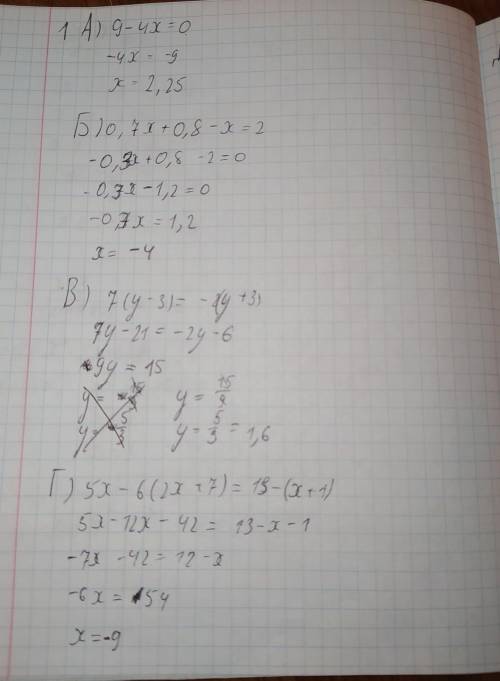 1 А) 9-4x=0
-4x = -9
x = 2,25
Б) 0,7x+0,8-x=2
-0,3x+0,8-2=0
-0,3x-1,2=0
-0,3x=1,2
x= -4
В) 7(y-3)= -2(y+3)
7y-21=-2y-6
9y=15
y = 15/9
y = 5/3 = 1,6
Г) 5x-6(2x+7)=13-(x+1)
5x-12x-42= 13-x-1
-7x -42=12-x
-6x = 54
x=-9